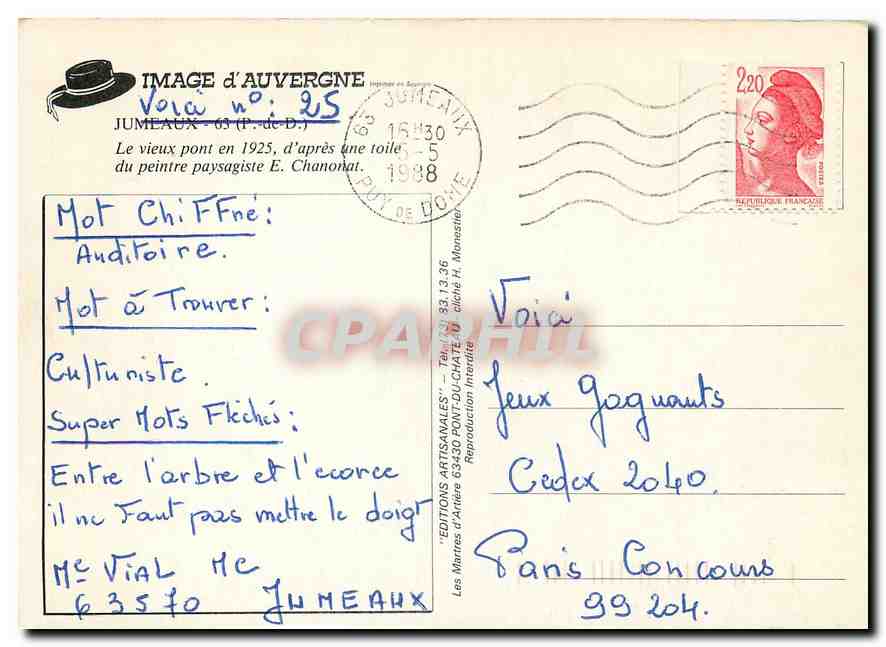 IMAGE d'AUVERGNE
Imprimé en Auvergne
Voià n°: 25
JUMEAUX - 63 (P.-de-D.)
Le vieux pont en 1925, d'après une toile
du peintre paysagiste E. Chanonat.
63 JUMEAUX
16H30
5-5
1988
PUY DE DOME
2,20
POSTES
REPUBLIQUE FRANÇAISE
Mot Chiffré:
Auditoire.
Mot à Trouver:
Culturiste.
Super Mots Fléchés:
Entre l'arbre et l'ecorce
il ne Faut pas mettre le doigt
Me VIAL MC
63570 JUMEAUX
"EDITIONS ARTISANALES" - Tél. (73) 83.13.36
Les Martres d'Artière 63430 PONT-DU-CHATEAU cliché H. Monestier
Reproduction Interdite
Voià
Jeux Gagnants
Cedex 2040.
Paris Concours
99204.
CPAPHIL